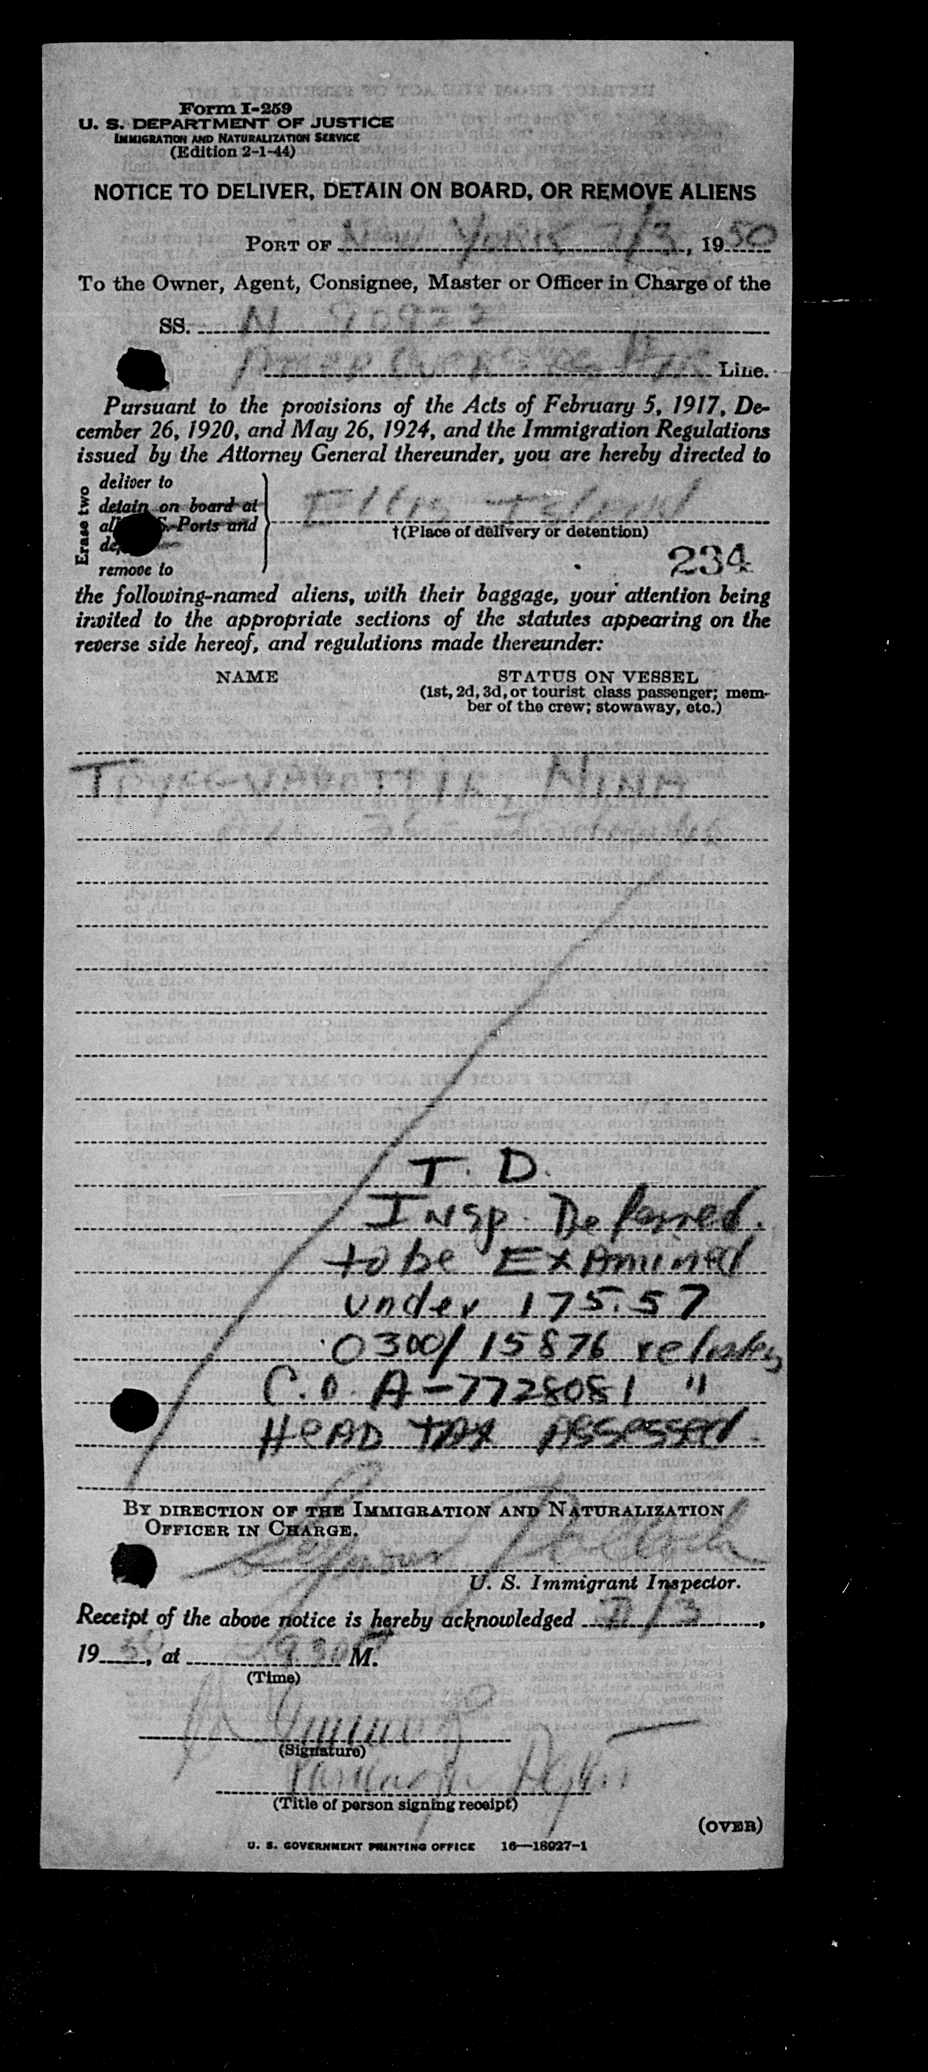 Form I-259
U. S. DEPARTMENT OF JUSTICE
IMMIGRATION AND NATURALIZATION SERVICE
(Edition 2-1-44)
NOTICE TO DELIVER, DETAIN ON BOARD, OR REMOVE ALIENS
PORT OF New York 7/3, 1950
To the Owner, Agent, Consignee, Master or Officer in Charge of the
SS. N 90922
Amer Overseas Air Line.
Pursuant to the provisions of the Acts of February 5, 1917, De-
cember 26, 1920, and May 26, 1924, and the Immigration Regulations
issued by the Attorney General thereunder, you are hereby directed to
Erase two
deliver to
detain on board at
Ports and
remove to
Ellis Island
†(Place of delivery or detention)
234
the following-named aliens, with their baggage, your attention being
invited to the appropriate sections of the statutes appearing on the
reverse side hereof, and regulations made thereunder:
NAME
STATUS ON VESSEL
(1st, 2d, 3d, or tourist class passenger; mem-
ber of the crew; stowaway, etc.)
NINA
T. D.
Insp. Deferred.
to be Examined
under 175.57
0300/15876 relates
C.O. A-7728081 "
HEAD TAX ASSESSED.
BY DIRECTION OF THE IMMIGRATION AND NATURALIZATION
OFFICER IN CHARGE.
Seymour Pollock
U. S. Immigrant Inspector.
Receipt of the above notice is hereby acknowledged 7/3,
1950, at 930P M.
(Time)
(Signature)
(Title of person signing receipt)
(OVER)
U. S. GOVERNMENT PRINTING OFFICE 16—18927-1